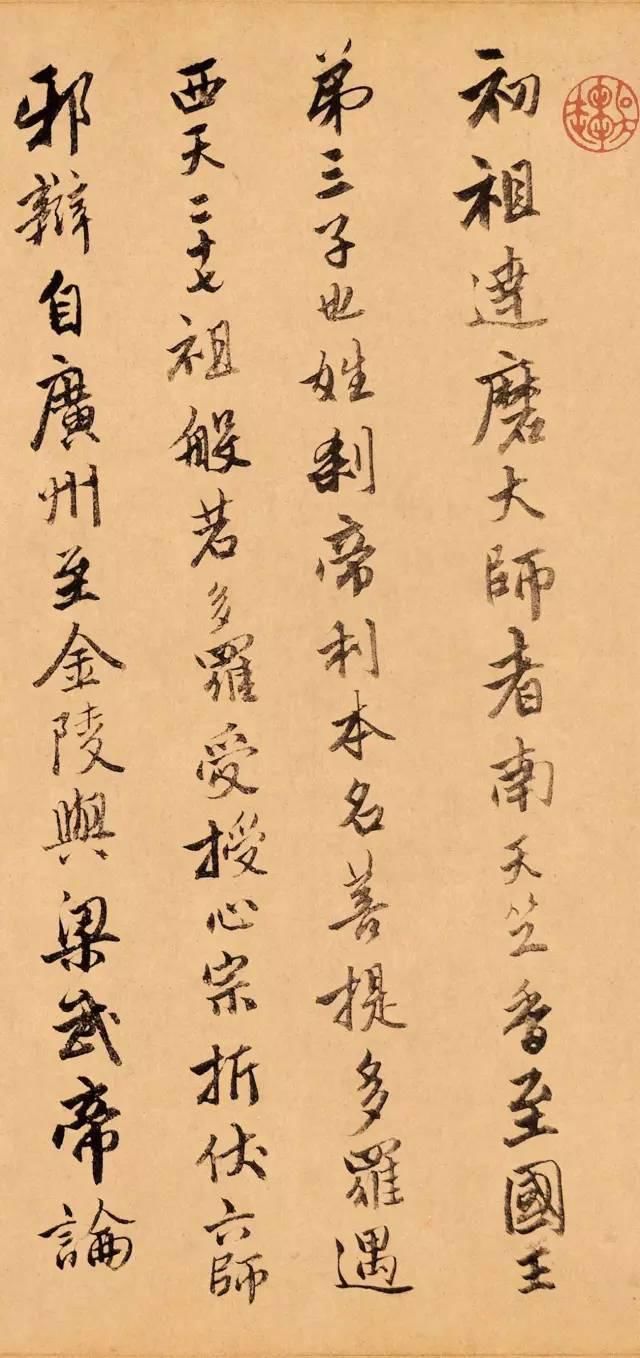 初祖達磨大師者南天竺香至國王
第三子也姓刹帝利本名菩提多羅遇
西天二十七祖般若多羅受授心宗折伏六師
邪辯自廣州至金陵與梁武帝論